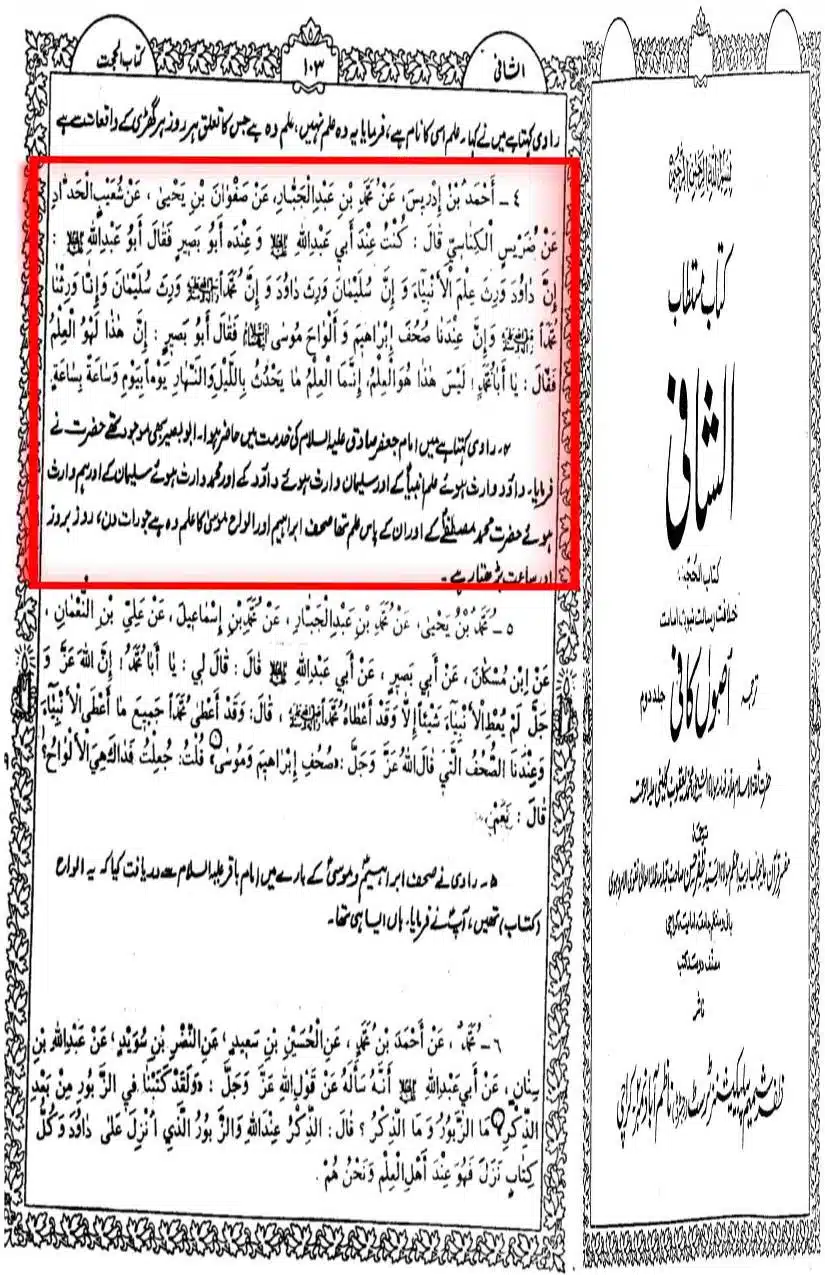 الشافی
۱۰۳
کتاب الحجت
راوی کہتا ہے میں نے کہا۔ علم اسی کا نام ہے، فرمایا یہ وہ علم نہیں، علم وہ ہے جس کا تعلق ہر روز ہر گھڑی کے واقعات سے ہے
٤ ـ أَحْمَدُ بْنُ إِدْرِيسَ، عَنْ مُحَمَّدِ بْنِ عَبْدِالْجَبَّارِ، عَنْ صَفْوَانَ بْنِ يَحْيىٰ ، عَنْ شُعَيْبِ الْحَدَّادِ
عَنْ ضُرَيْسٍ الْكِنَاسِيِّ قَالَ : كُنْتُ عِنْدَ أَبِي عَبْدِاللهِ وَ عِنْدَهُ أَبُو بَصِيرٍ فَقَالَ أَبُو عَبْدِاللهِ :
إِنَّ دَاوُدَ وَرِثَ عِلْمَ الْأَنْبِيَاءِ وَ إِنَّ سُلَيْمَانَ وَرِثَ دَاوُدَ وَ إِنَّ مُحَمَّداً وَرِثَ سُلَيْمَانَ وَإِنَّا وَرِثْنَا
مُحَمَّداً وَإِنَّ عِنْدَنَا صُحُفَ إِبْرَاهِيمَ وَ أَلْوَاحَ مُوسَى فَقَالَ أَبُو بَصِيرٍ : إِنَّ هٰذَا لَهُوَ الْعِلْمُ
فَقَالَ : يَا أَبَا مُحَمَّدٍ ! لَيْسَ هٰذَا هُوَ الْعِلْمُ، إِنَّمَا الْعِلْمُ مَا يَحْدُثُ بِاللَّيْلِ وَالنَّهَارِ يَوْماً بِيَوْمٍ وَسَاعَةً بِسَاعَةٍ.
۴۔ راوی کہتا ہے میں امام جعفر صادق علیہ السلام کی خدمت میں حاضر ہوا۔ ابوبصیر بھی موجود تھے حضرت نے
فرمایا۔ داؤد وارث ہوئے علم انبیاؑ کے اور سلیمان وارث ہوئے داؤد کے اور محمد وارث ہوئے سلیمان کے اور ہم وارث
ہوئے حضرت محمد مصطفیٰؐ کے اور ان کے پاس علم تھا صحف ابراہیم اور الواح موسیٰ کا علم وہ ہے جو رات دن، روز بروز
اور ساعت بڑھتا رہے۔
٥ ـ مُحَمَّدُ بْنُ يَحْيىٰ، عَنْ مُحَمَّدِ بْنِ عَبْدِالْجَبَّارِ، عَنْ مُحَمَّدِبْنِ إِسْمَاعِيلَ، عَنْ عَلِيِّ بْنِ النُّعْمَانِ ،
عَنْ اِبْنِ مُسْكَانَ، عَنْ أَبِي بَصِيرٍ ، عَنْ أَبِي عَبْدِاللهِ قَالَ : قَالَ لِي : يَا أَبَا مُحَمَّدٍ ! إِنَّ اللهَ عَزَّ وَ
جَلَّ لَمْ يُعْطِ الْأَنْبِيَاءَ شَيْئاً إِلَّا وَقَدْ أَعْطَاهُ مُحَمَّداً ، قَالَ : وَقَدْ أَعْطَىٰ مُحَمَّداً جَمِيعَ مَا أَعْطَى الْأَنْبِيَاءَ،
وَعِنْدَنَا الصُّحُفُ الَّتِي قَالَ اللهُ عَزَّ وَ جَلَّ : «صُحُفِ إِبْرَاهِيمَ وَمُوسَىٰ» قُلْتُ : جُعِلْتُ فَدَاكَ هِيَ الْأَلْوَاحُ؟
قَالَ : نَعَمْ.
۵۔ راوی نے صحف ابراہیمؑ و موسیٰؑ کے بارے میں امام باقر علیہ السلام سے دریافت کیا کہ یہ الواح
(کتاب) تھیں، آپؑ نے فرمایا۔ ہاں ایسا ہی تھا۔
٦ ـ مُحَمَّدٌ ، عَنْ أَحْمَدَ بْنِ مُحَمَّدٍ ، عَنِ الْحُسَيْنِ بْنِ سَعِيدٍ ، عَنِ النَّضْرِ بْنِ سُوَيْدٍ ، عَنْ عَبْدِاللهِ بْنِ
سِنَانٍ ، عَنْ أَبِي عَبْدِاللهِ أَنَّهُ سَأَلَهُ عَنْ قَوْلِ اللهِ عَزَّ وَجَلَّ : «وَلَقَدْ كَتَبْنَا فِي الزَّبُورِ مِنْ بَعْدِ
الذِّكْرِ» مَا الزَّبُورُ وَ مَا الذِّكْرُ ؟ قَالَ : الذِّكْرُ عِنْدَاللهِ وَالزَّبُورُ الَّذِي أُنْزِلَ عَلَىٰ دَاوُدَ وَكُلُّ
كِتَابٍ نَزَلَ فَهُوَ عِنْدَ أَهْلِ الْعِلْمِ وَنَحْنُ هُمْ .
بسم الله الرحمن الرحيم
کتاب مستطاب
الشافی
کتاب الحجۃ
خلافت رسالت نبوت امامت
ترجمہ اصول کافی جلد دوم
کتب
ناشر
ظفر شمیم پبلیکیشنز ٹرسٹ ناظم آباد کراچی